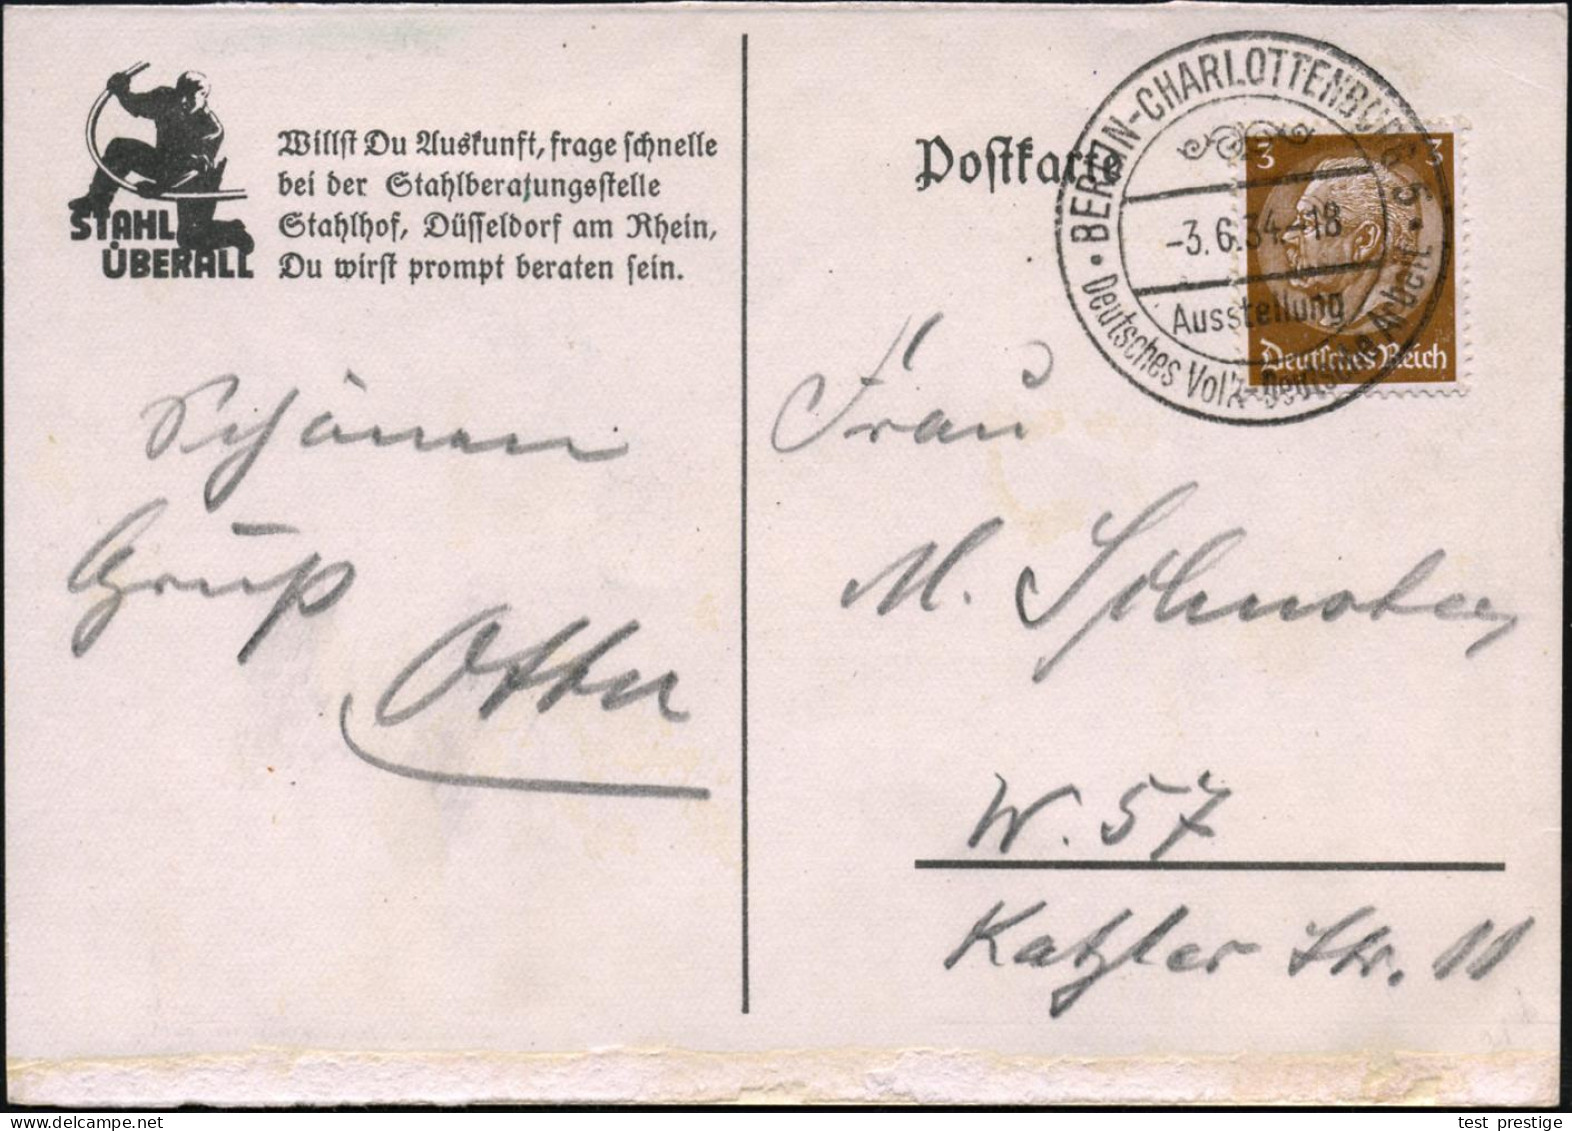 STAHL
ÜBERALL
Willst Du Auskunft, frage schnelle
bei der Stahlberatungsstelle
Stahlhof, Düsseldorf am Rhein,
Du wirst prompt beraten sein.
Schönen
Gruß
Postkarte
BERLIN-CHARLOTTENBURG 5
-3.6.34.-18
Ausstellung
Deutsches Volk-Deutsche Arbeit
3 3
Deutsches Reich
Frau
M.
W. 57
Katzler Str. 11
test prestige